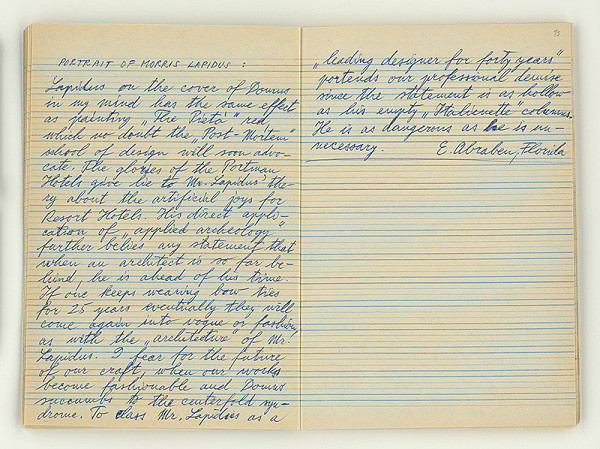 PORTRAIT OF MORRIS LAPIDUS :
Lapidus on the cover of Domus
in my mind has the same effect
as painting „The Pieta" red
which no doubt the „Post-Mortem"
school of design will soon advo-
cate. The glories of the Portman
Hotels give lie to Mr. Lapidus' theo-
ry about the artificial joys for
Resort Hotels. His direct appli-
cation of „applied archeology"
further belies any statement that
when an architect is so far be-
hind, he is ahead of his time.
If one keeps wearing bow ties
for 25 years eventually they will
come again into vogue or fashion,
as with the „architecture" of Mr.
Lapidus. I fear for the future
of our craft, when our works
become fashionable and Domus
succumbs to the centerfold syn-
drome. To class Mr. Lapidus as a
73
„leading designer for forty years"
portends our professional demise
since the statement is as hollow
as his empty „Italienette" columns.
He is as dangerous as he is un-
necessary. E. Abraben, Florida